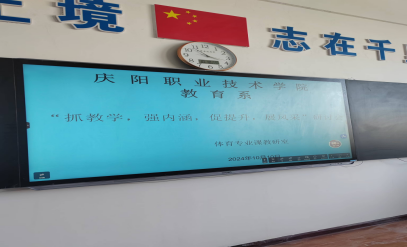 境
志在千
庆阳职业技术学院
教育系
“抓教学，强内涵，促提升，
体育专业课教研室
2024年10月